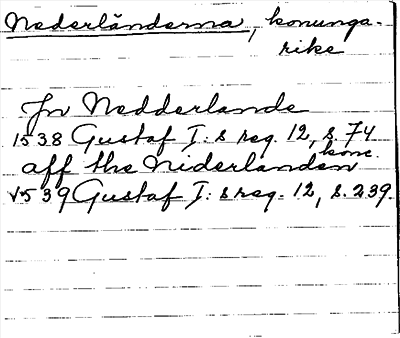 Nederländerna, konunga-
rike
In Nedderlande
1538 Gustaf I:s reg. 12, s. 74
aff the Niderlanden konc.
1539 Gustaf I:s reg. 12, s. 239.